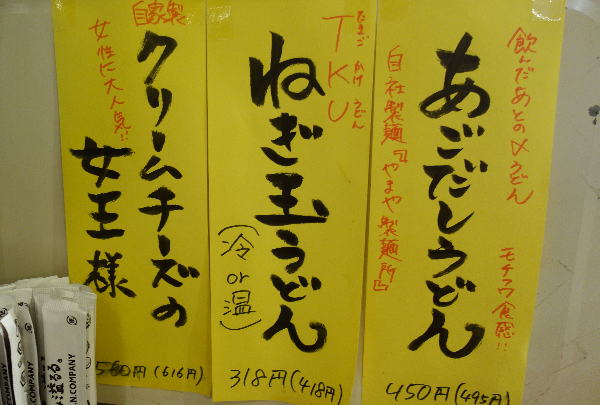 飲んだあとの〆うどん
あごだしうどん
モチフワ食感!!
自社製麺『やまや製麺所』
450円(495円)
たまご かけ うどん
TKU
ねぎ玉うどん
(冷or温)
318円(418円)
自家製
クリームチーズの
女王様
女性に大人気!!
560円(616円)
溢るる。
N COMPANY